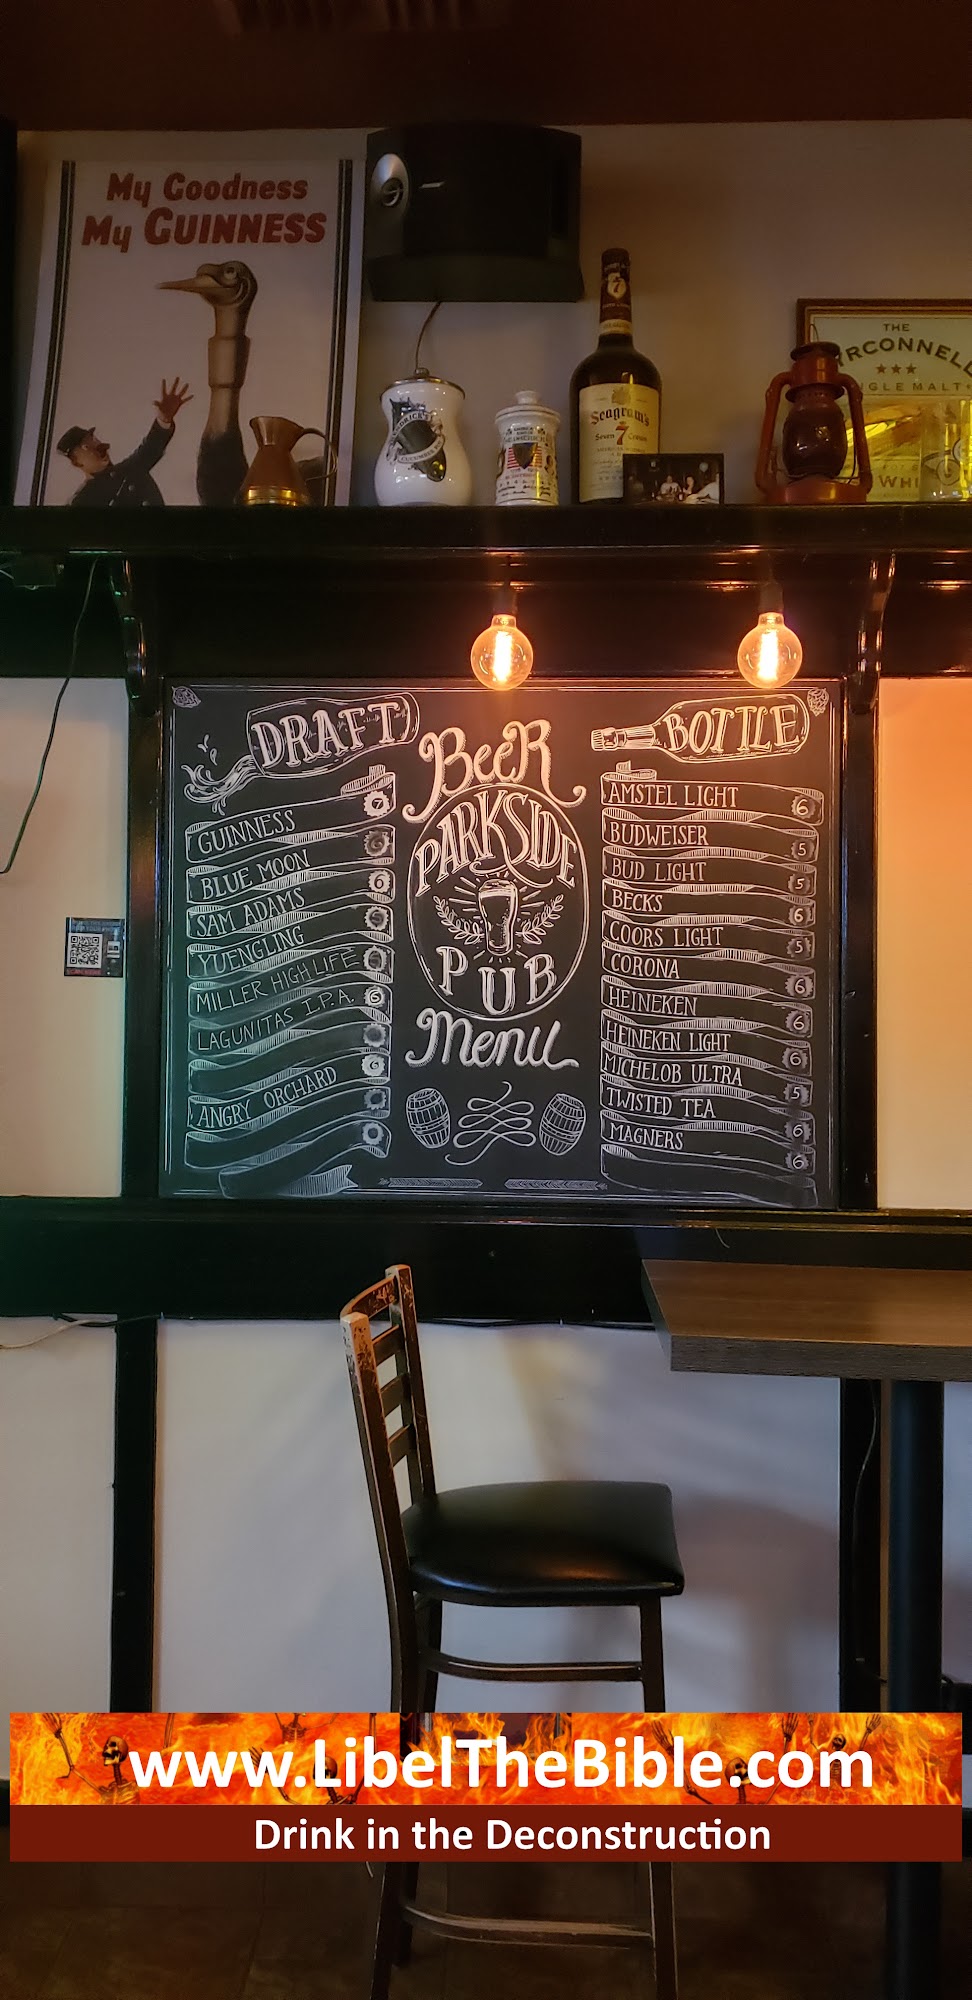 My Goodness
My GUINNESS
Seagram's
Seven 7 Crown
THE
YRCONNELL
★★★
NGLE MALT
WHI
DRAFT
GUINNESS 7
BLUE MOON 6
SAM ADAMS 6
YUENGLING 5
MILLER HIGH LIFE
LAGUNITAS I.P.A. 6
ANGRY ORCHARD 6
BEER
PARKSIDE
PUB
Menu
BOTTLE
AMSTEL LIGHT 6
BUDWEISER 5
BUD LIGHT 5
BECKS 6
COORS LIGHT 5
CORONA 6
HEINEKEN 6
HEINEKEN LIGHT 6
MICHELOB ULTRA 5
TWISTED TEA 6
MAGNERS 6
www.LibelTheBible.com
Drink in the Deconstruction